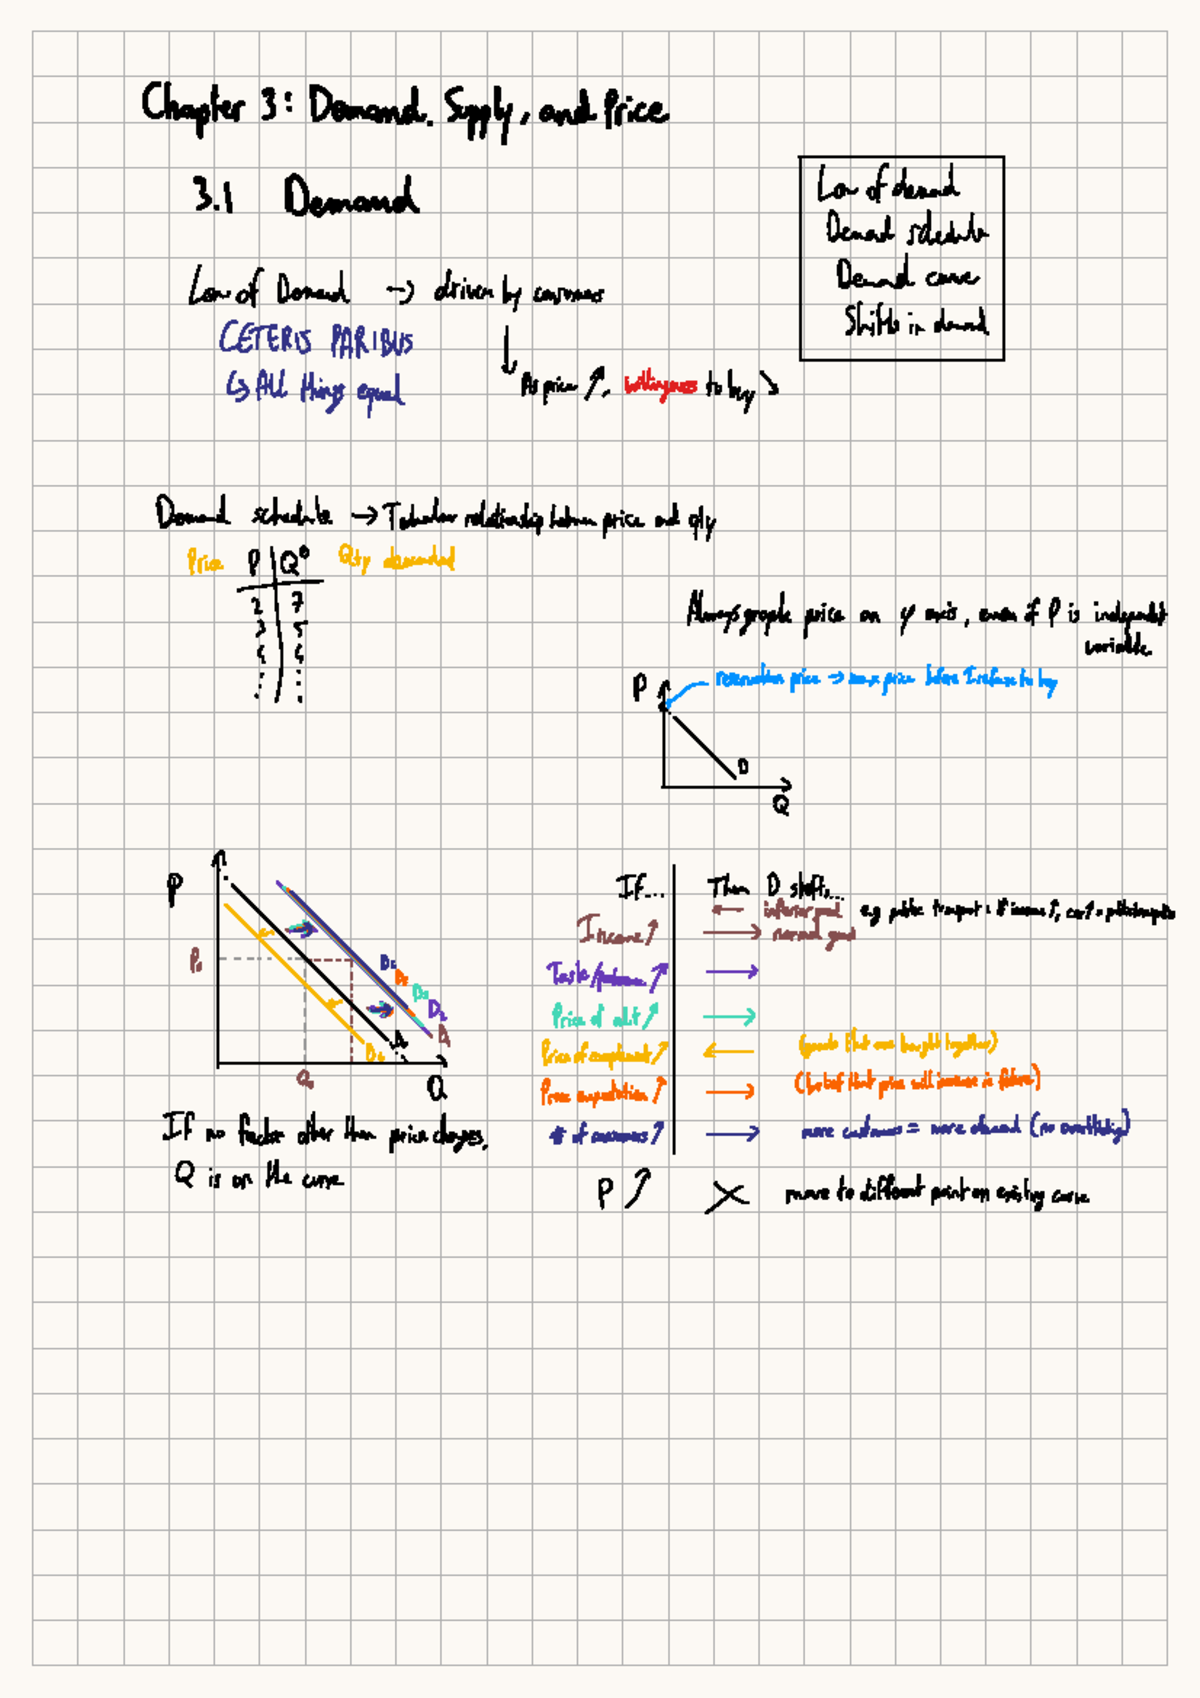 Chapter 3: Demand, Supply, and Price
3.1 Demand
Law of demand
Demand schedule
Demand curve
Shifts in demand
Law of Demand → driven by consumers
CETERIS PARIBUS
↳ All things equal
↓ As price ↗, willingness to buy ↘
Demand schedule → Tabular relationship between price and qty
Price P Qᴰ Qty demanded
2 7
3 5
Always graph price on y axis, even if P is independent
variable.
P reservation price → max price before I refuse to buy
D
Q
P
P₀
D₆
D₅
D₃
D₂
D₁
D₀
D₄
Q₀
Q
If no factor other than price changes,
Q is on the curve
If... Then D shifts...
← inferior good e.g. public transport: if income ↑, car ↑
Income ↗ → normal good
Taste/preference ↗ →
Price of ↗ →
Price of complement ↗ ← (goods that are bought together)
Price expectation ↗ → (belief that price will increase in future)
# of consumers ↗ → more customers = more demand (no overthinking)
P ↗ X move to different point on existing curve